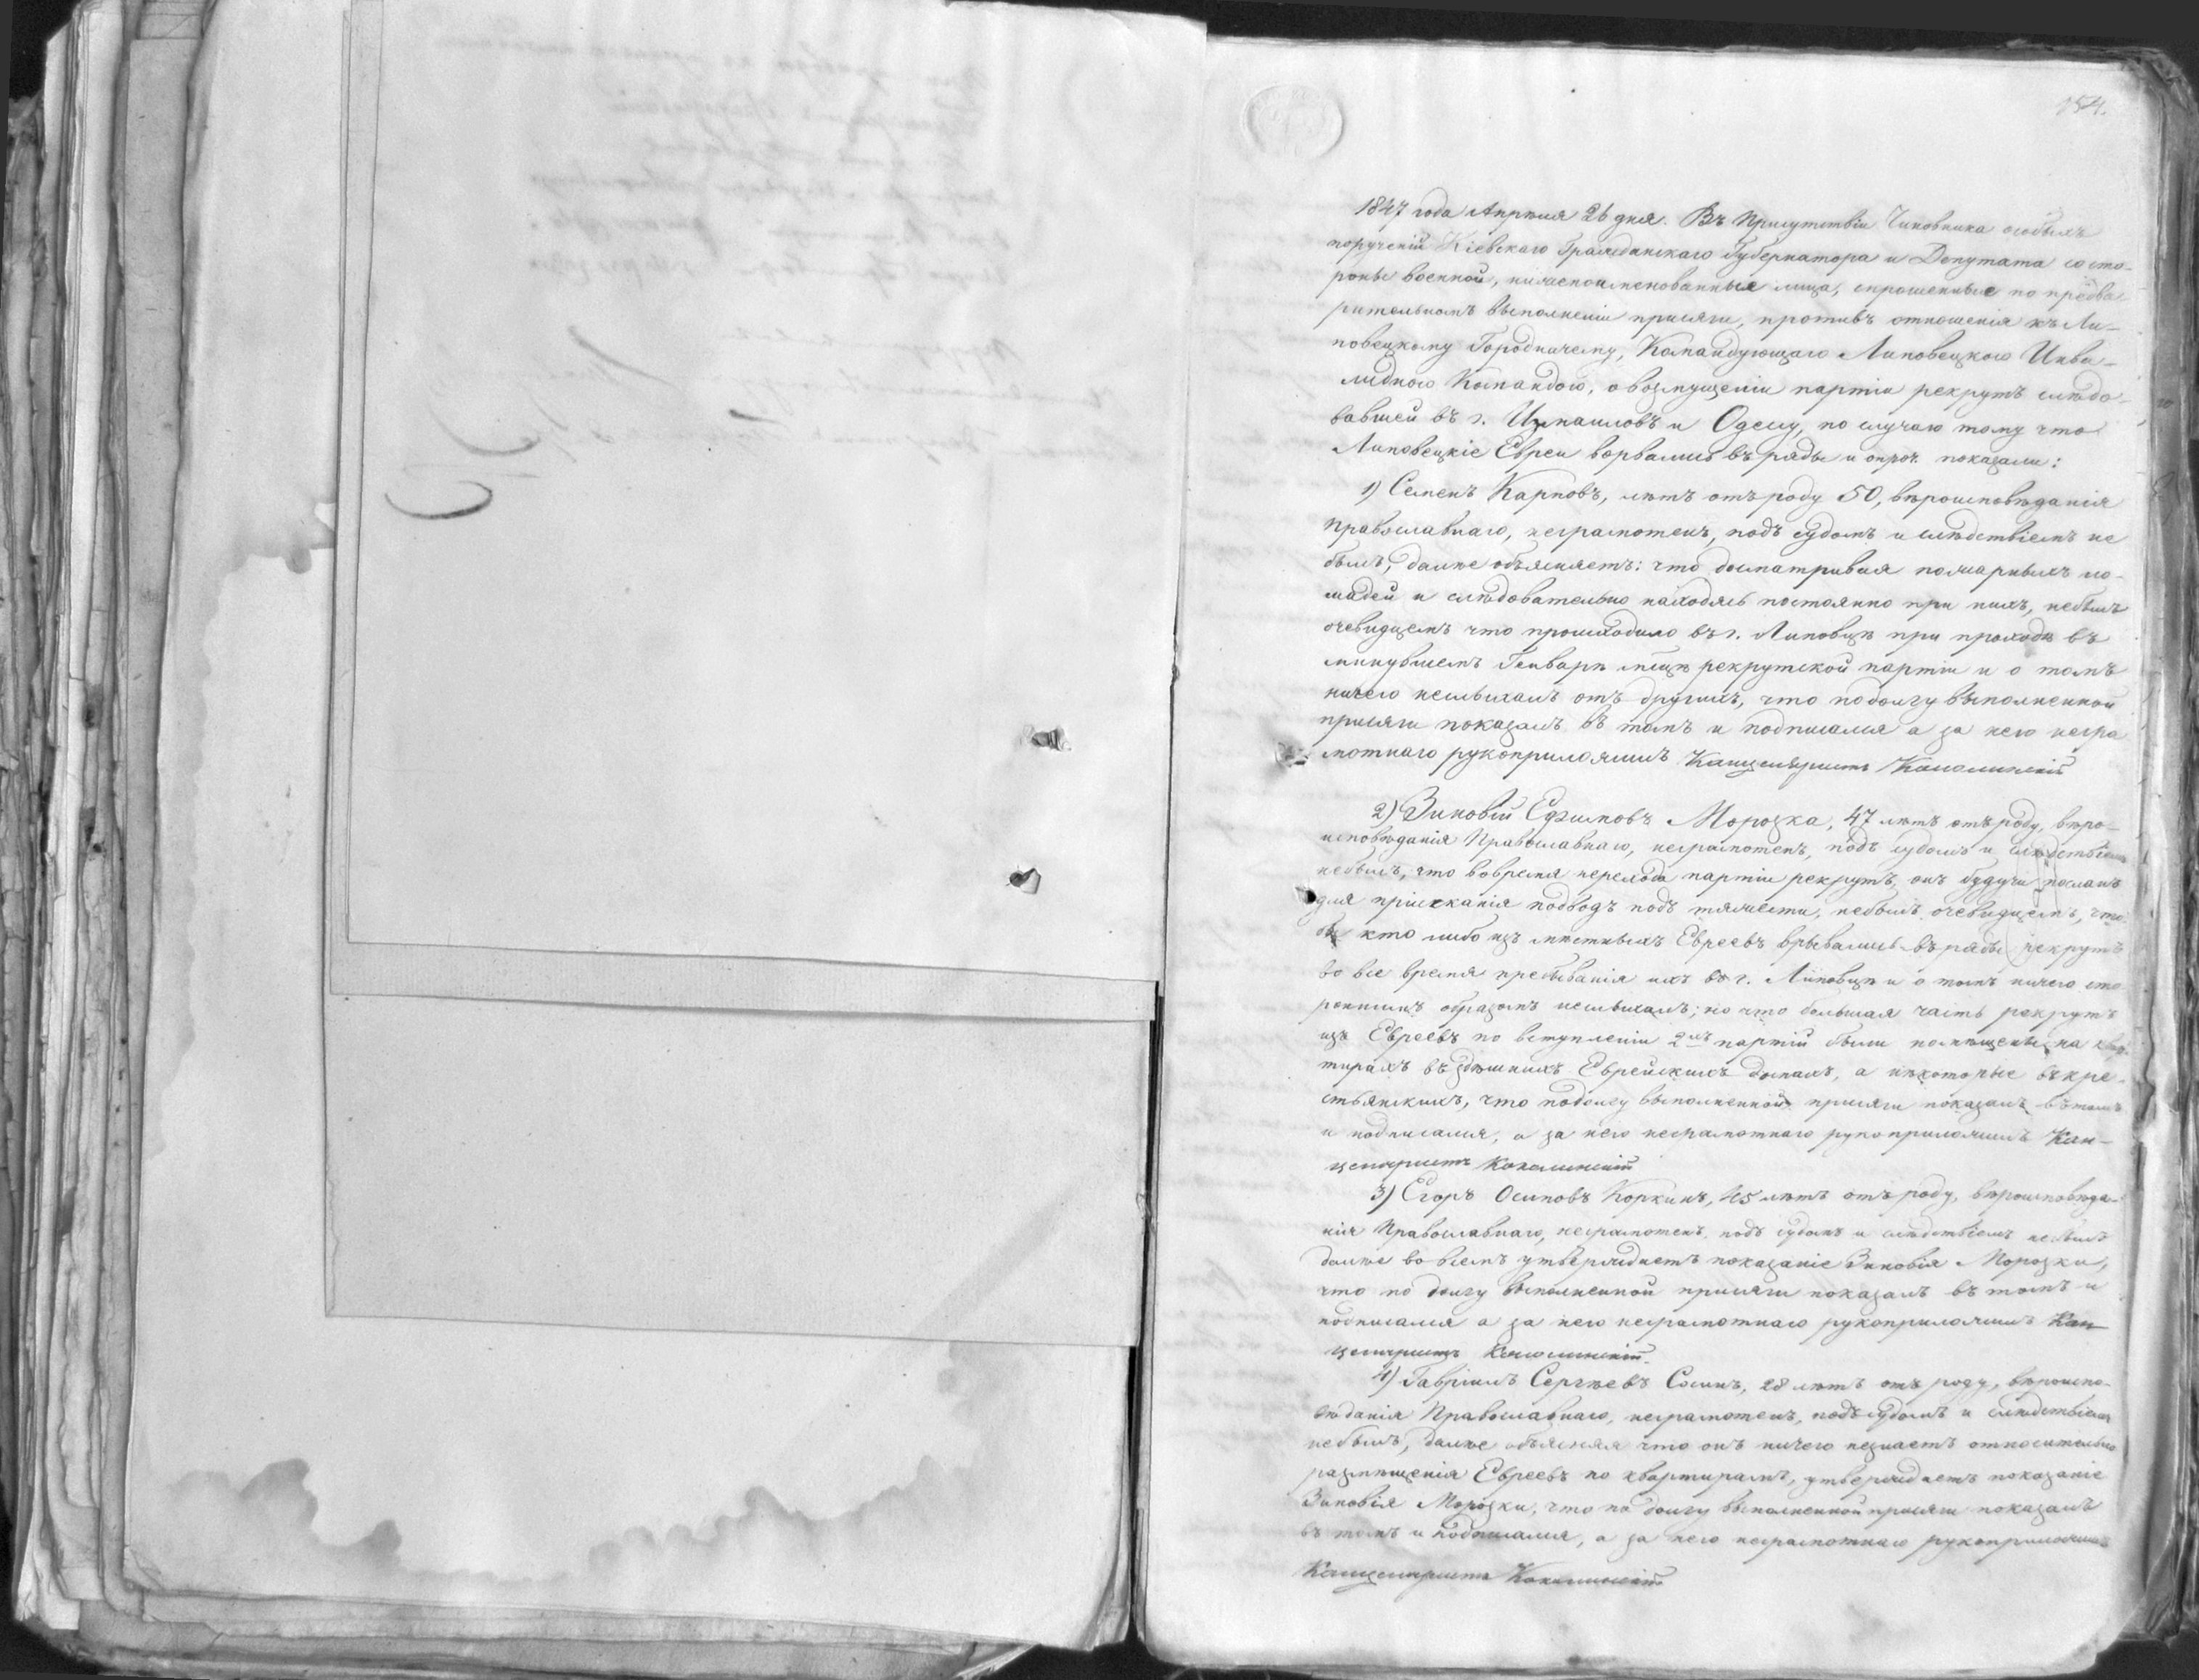 154.
1847 года Апрѣля 26 дня. Въ присутствіи Чиновника особыхъ
порученій Кіевскаго Гражданскаго Губернатора и Депутата со сто-
роны военной, нижепоименованныя лица, спрошенные по предва-
рительномъ выполненіи присяги, противъ отношенія къ Ли-
повецкому Городничему, Командующаго Липовецкою Инва-
лидною Командою, о возмущеніи партіи рекрутъ слѣдо-
вавшей въ г. Измаиловъ и Одессу, по случаю тому что
Липовецкіе Евреи ворвались въ ряды и проч. показали:
1) Семенъ Карповъ, лѣтъ отъ роду 50, вѣроисповѣданія
Православнаго, неграмотенъ, подъ судомъ и слѣдствіемъ не
былъ, далѣе объясняетъ: что досматривая пожарныхъ ло-
шадей и слѣдовательно находясь постоянно при нихъ, небылъ
очевидцемъ что происходило въ г. Липовцѣ при проходѣ въ
минувшемъ Генварѣ м-цѣ рекрутской партіи и о томъ
ничего неслыхалъ отъ другихъ, что по долгу выполненной
присяги показалъ въ томъ и подписался а за него негра
мотнаго рукоприложилъ Канцеляристъ
2) Зиновій Ефимовъ Морозка, 47 лѣтъ отъ роду, вѣро-
исповѣданія Православнаго, неграмотенъ, подъ судомъ и слѣдствіемъ
небылъ, что вовремя перехода партіи рекрутъ, онъ будучи посланъ
для пріисканія подводъ подъ тяжести, небылъ очевидцемъ, что-
бы кто либо изъ мѣстныхъ Евреевъ врывались въ ряды рекрутъ
во все время пребыванія ихъ въ г. Липовцѣ и о томъ ничего сто
роннимъ образомъ неслыхалъ; но что большая часть рекрутъ
изъ Евреевъ по вступленіи 2хъ партій были помѣщены на квар-
тирахъ въ здѣшнихъ Еврейскихъ домахъ, а нѣкоторые въ кре-
стьянскихъ, что по долгу выполненной присяги показалъ въ томъ
и подписался, а за него неграмотнаго рукоприложилъ Кан-
целяристъ
3) Егоръ Осиповъ Коркинъ, 45 лѣтъ отъ роду, вѣроисповѣда-
нія Православнаго, неграмотенъ, подъ судомъ и слѣдствіемъ небылъ
далѣе во всемъ утверждаетъ показаніе Зиновія Морозки,
что по долгу выполненной присяги показалъ въ томъ и
подписался а за него неграмотнаго рукоприложилъ Кан
целяристъ
4) Гавріилъ Сергѣевъ Сошинъ, 28 лѣтъ отъ роду, вѣроиспо-
вѣданія Православнаго, неграмотенъ, подъ судомъ и слѣдствіемъ
небылъ, далѣе объясняя что онъ ничего незнаетъ относительно
размѣщенія Евреевъ по квартирамъ, утверждаетъ показаніе
Зиновія Морозки, что по долгу выполненной присяги показалъ
въ томъ и подписался, а за него неграмотнаго рукоприложилъ
Канцеляристъ